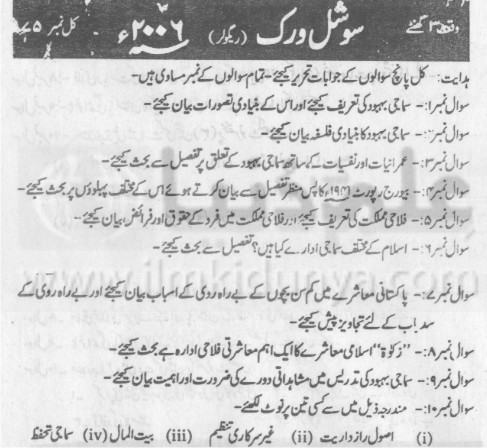 وقت ۳ گھنٹے سوشل ورک (ریگولر) سنہ ۲۰۰۶ء کل نمبر ۷۵
ہدایت: کل پانچ سوالوں کے جوابات تحریر کیجئے - تمام سوالوں کے نمبر مساوی ہیں-
سوال نمبر۱:- سماجی بہبود کی تعریف کیجئے اور اس کے بنیادی تصورات بیان کیجئے-
سوال نمبر۲:- سماجی بہبود کا بنیادی فلسفہ بیان کیجئے-
سوال نمبر۳:- عمرانیات اور نفسیات کے ساتھ سماجی بہبود کے تعلق پر تفصیل سے بحث کیجئے-
سوال نمبر۴:- بیورج رپورٹ ۱۹۴۱ء کا پس منظر تفصیل سے بیان کرتے ہوئے اس کے مختلف پہلوؤں پر بحث کیجئے-
سوال نمبر۵:- فلاحی مملکت کی تعریف کیجئے اور فلاحی مملکت میں فرد کے حقوق اور فرائض بیان کیجئے-
سوال نمبر۶:- اسلام کے مختلف سماجی ادارے کیا ہیں؟ تفصیل سے بحث کیجئے-
www.ilmkidunya.com
سوال نمبر۷:- پاکستانی معاشرے میں کم سن بچوں کے بے راہ روی کے اسباب بیان کیجئے اور بے راہ روی کے
سدباب کے لئے تجاویز پیش کیجئے-
سوال نمبر۸:- "زکوٰۃ" اسلامی معاشرے کا ایک اہم معاشرتی فلاحی ادارہ ہے بحث کیجئے-
سوال نمبر۹:- سماجی بہبود کی تدریس میں مشاہداتی دورے کی ضرورت اور اہمیت بیان کیجئے-
سوال نمبر۱۰:- مندرجہ ذیل میں سے کسی تین پر نوٹ لکھئے-
(i) اصول رازداریت (ii) غیر سرکاری تنظیم (iii) بیت المال (iv) سماجی تحفظ